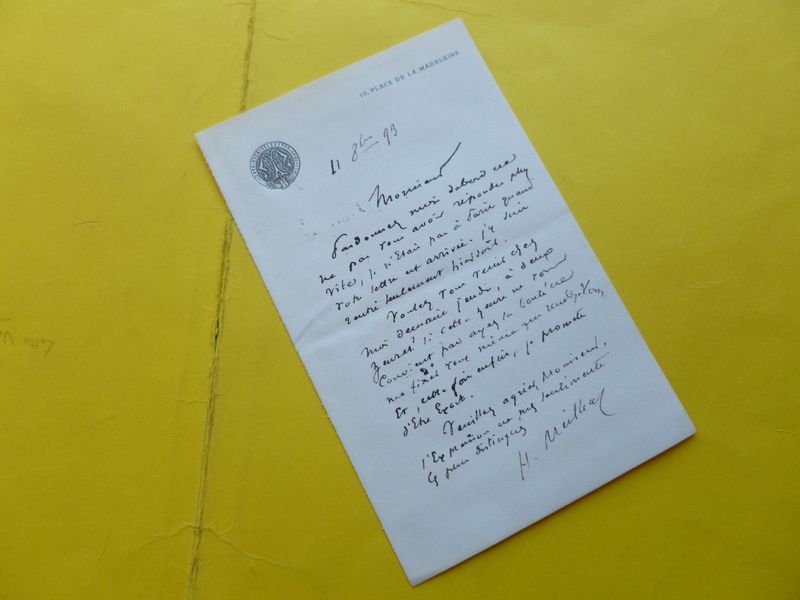 10, PLACE DE LA MADELEINE
11 8bre 93
Monsieur
Pardonnez moi d'abord de
ne pas vous avoir répondu plus
vite, je n'étais pas à Paris quand
votre lettre est arrivée. J'y suis
rentré seulement hier soir.
Voulez vous venir chez
moi demain jeudi, à deux
heures? Si cette heure ne vous
convient pas ayez la bonté de
me fixer vous même un rendez-vous,
Et, cette fois enfin, je promets
d'être Exact.
Veuillez agréer Monsieur,
l'Expression de mes sentiments
les plus distingués
H. Meilhac